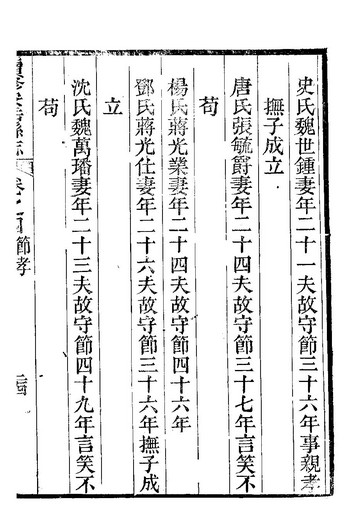 史氏魏世鍾妻年二十一夫故守節三十六年事親孝
撫子成立
唐氏張毓爵妻年二十二夫故守節三十七年言笑不
苟
楊氏蔣光業妻年二十四夫故守節四十六年
鄧氏蔣光仕妻年二十六夫故守節三十六年撫子成
立
沈氏魏萬璠妻年二十三夫故守節四十九年言笑不
苟
節孝